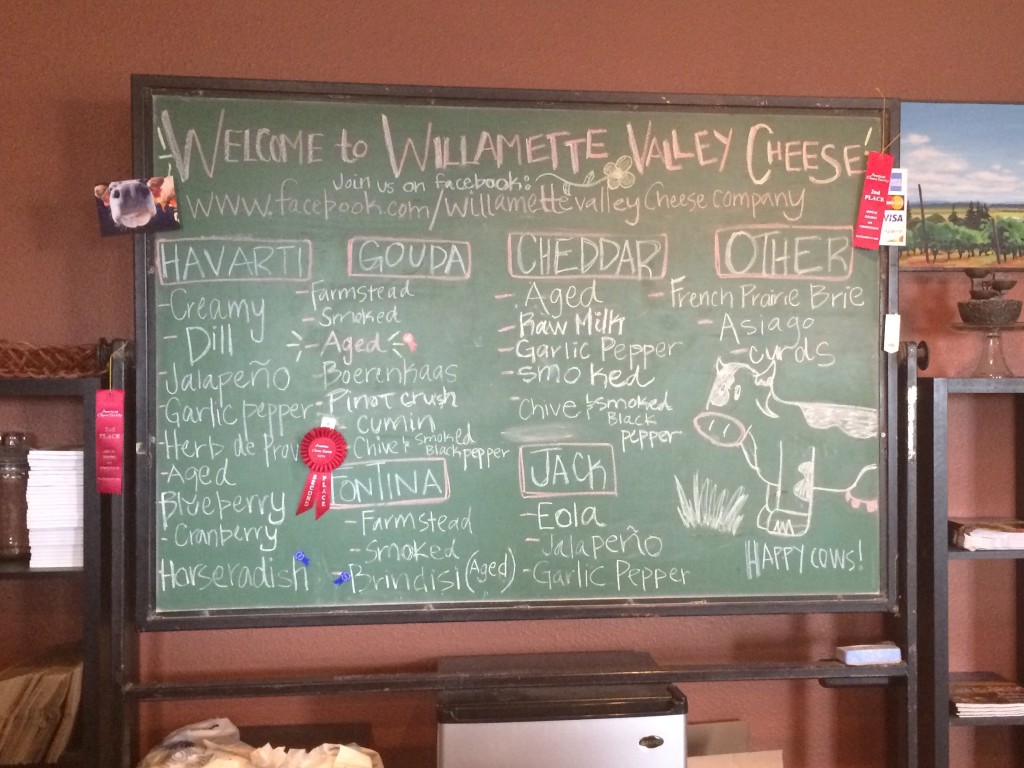 WELCOME to WILLAMETTE VALLEY CHEESE
Join us on facebook:
www.facebook.com/willamettevalleyCheese company
HAVARTI
- Creamy
- Dill
- Jalapeño
- Garlic pepper
- Herb de Prov
- Aged
Blueberry
- Cranberry
Horseradish
GOUDA
- Farmstead
- Smoked
- Aged
- Boerenkaas
- Pinot crush
- cumin
- Chive & smoked
Black pepper
FONTINA
- Farmstead
- Smoked
- Brindisi (Aged)
CHEDDAR
- Aged
- Raw Milk
- Garlic Pepper
- smoked
Chive & smoked
Black
pepper
JACK
- Eola
- Jalapeño
- Garlic Pepper
OTHER
- French Prairie Brie
- Asiago
- curds
HAPPY COWS!
2nd
PLACE
VISA
2nd
PLACE
SECOND
PLACE